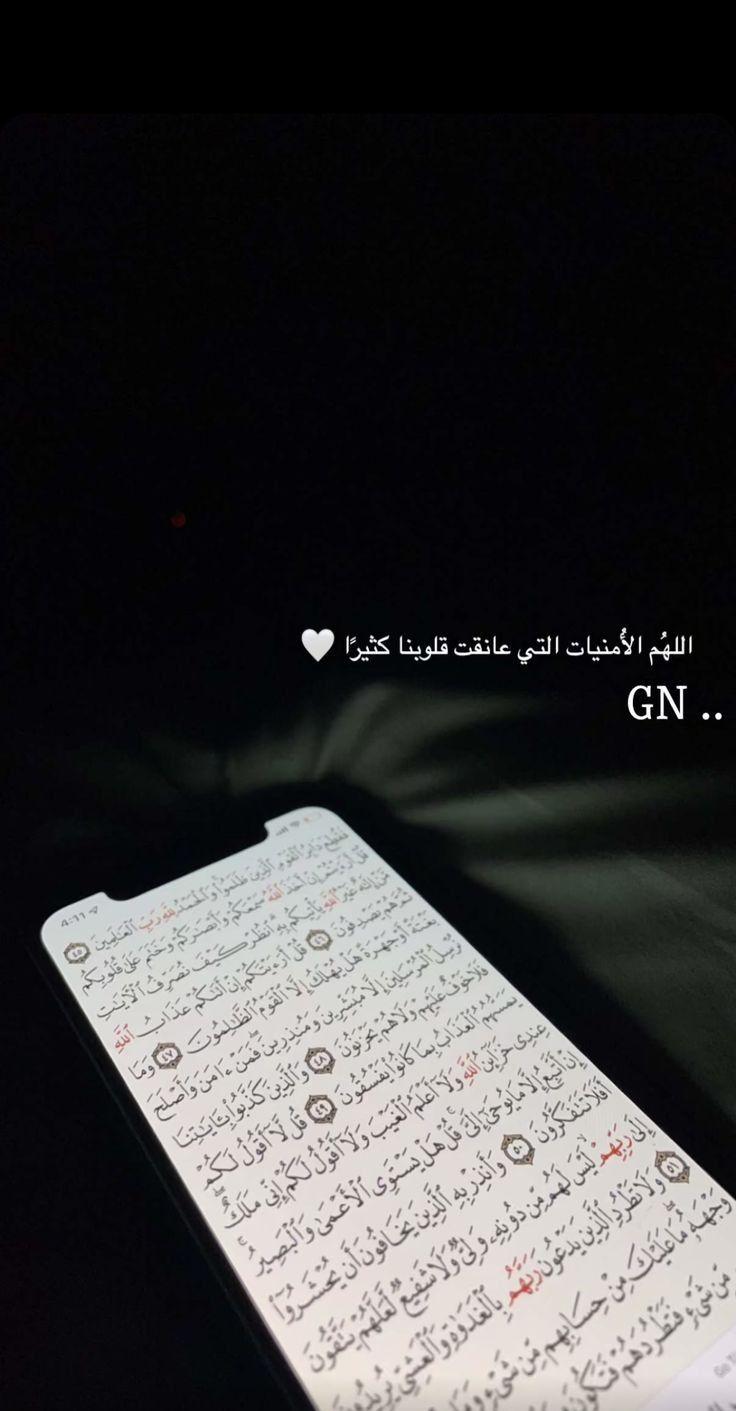 اللهُم الأُمنيات التي عانقت قلوبنا كثيرًا 🤍
GN ..
4:11
فَقُطِعَ دَابِرُ ٱلْقَوْمِ ٱلَّذِينَ ظَلَمُوا۟ وَٱلْحَمْدُ لِلَّهِ رَبِّ ٱلْعَـٰلَمِينَ ٤٥
قُلْ أَرَءَيْتُمْ إِنْ أَخَذَ ٱللَّهُ سَمْعَكُمْ وَأَبْصَـٰرَكُمْ وَخَتَمَ عَلَىٰ قُلُوبِكُم
مَّنْ إِلَـٰهٌ غَيْرُ ٱللَّهِ يَأْتِيكُم بِهِ ٱنظُرْ كَيْفَ نُصَرِّفُ ٱلْـَٔايَـٰتِ
ثُمَّ هُمْ يَصْدِفُونَ ٤٦ قُلْ أَرَءَيْتَكُمْ إِنْ أَتَىٰكُمْ عَذَابُ ٱللَّهِ
بَغْتَةً أَوْ جَهْرَةً هَلْ يُهْلَكُ إِلَّا ٱلْقَوْمُ ٱلظَّـٰلِمُونَ ٤٧ وَمَا
نُرْسِلُ ٱلْمُرْسَلِينَ إِلَّا مُبَشِّرِينَ وَمُنذِرِينَ فَمَنْ ءَامَنَ وَأَصْلَحَ
فَلَا خَوْفٌ عَلَيْهِمْ وَلَا هُمْ يَحْزَنُونَ ٤٨ وَٱلَّذِينَ كَذَّبُوا۟ بِـَٔايَـٰتِنَا
يَمَسُّهُمُ ٱلْعَذَابُ بِمَا كَانُوا۟ يَفْسُقُونَ ٤٩ قُل لَّآ أَقُولُ لَكُمْ
عِندِى خَزَآئِنُ ٱللَّهِ وَلَآ أَعْلَمُ ٱلْغَيْبَ وَلَآ أَقُولُ لَكُمْ إِنِّى مَلَكٌ
إِنْ أَتَّبِعُ إِلَّا مَا يُوحَىٰٓ إِلَىَّ قُلْ هَلْ يَسْتَوِى ٱلْأَعْمَىٰ وَٱلْبَصِيرُ
أَفَلَا تَتَفَكَّرُونَ ٥٠ وَأَنذِرْ بِهِ ٱلَّذِينَ يَخَافُونَ أَن يُحْشَرُوٓا۟
إِلَىٰ رَبِّهِمْ لَيْسَ لَهُم مِّن دُونِهِۦ وَلِىٌّ وَلَا شَفِيعٌ لَّعَلَّهُمْ يَتَّقُونَ
٥١ وَلَا تَطْرُدِ ٱلَّذِينَ يَدْعُونَ رَبَّهُم بِٱلْغَدَوٰةِ وَٱلْعَشِىِّ يُرِيدُونَ
وَجْهَهُۥ مَا عَلَيْكَ مِنْ حِسَابِهِم مِّن شَىْءٍ وَمَا
مِّن شَىْءٍ فَتَطْرُدَهُمْ فَتَكُونَ